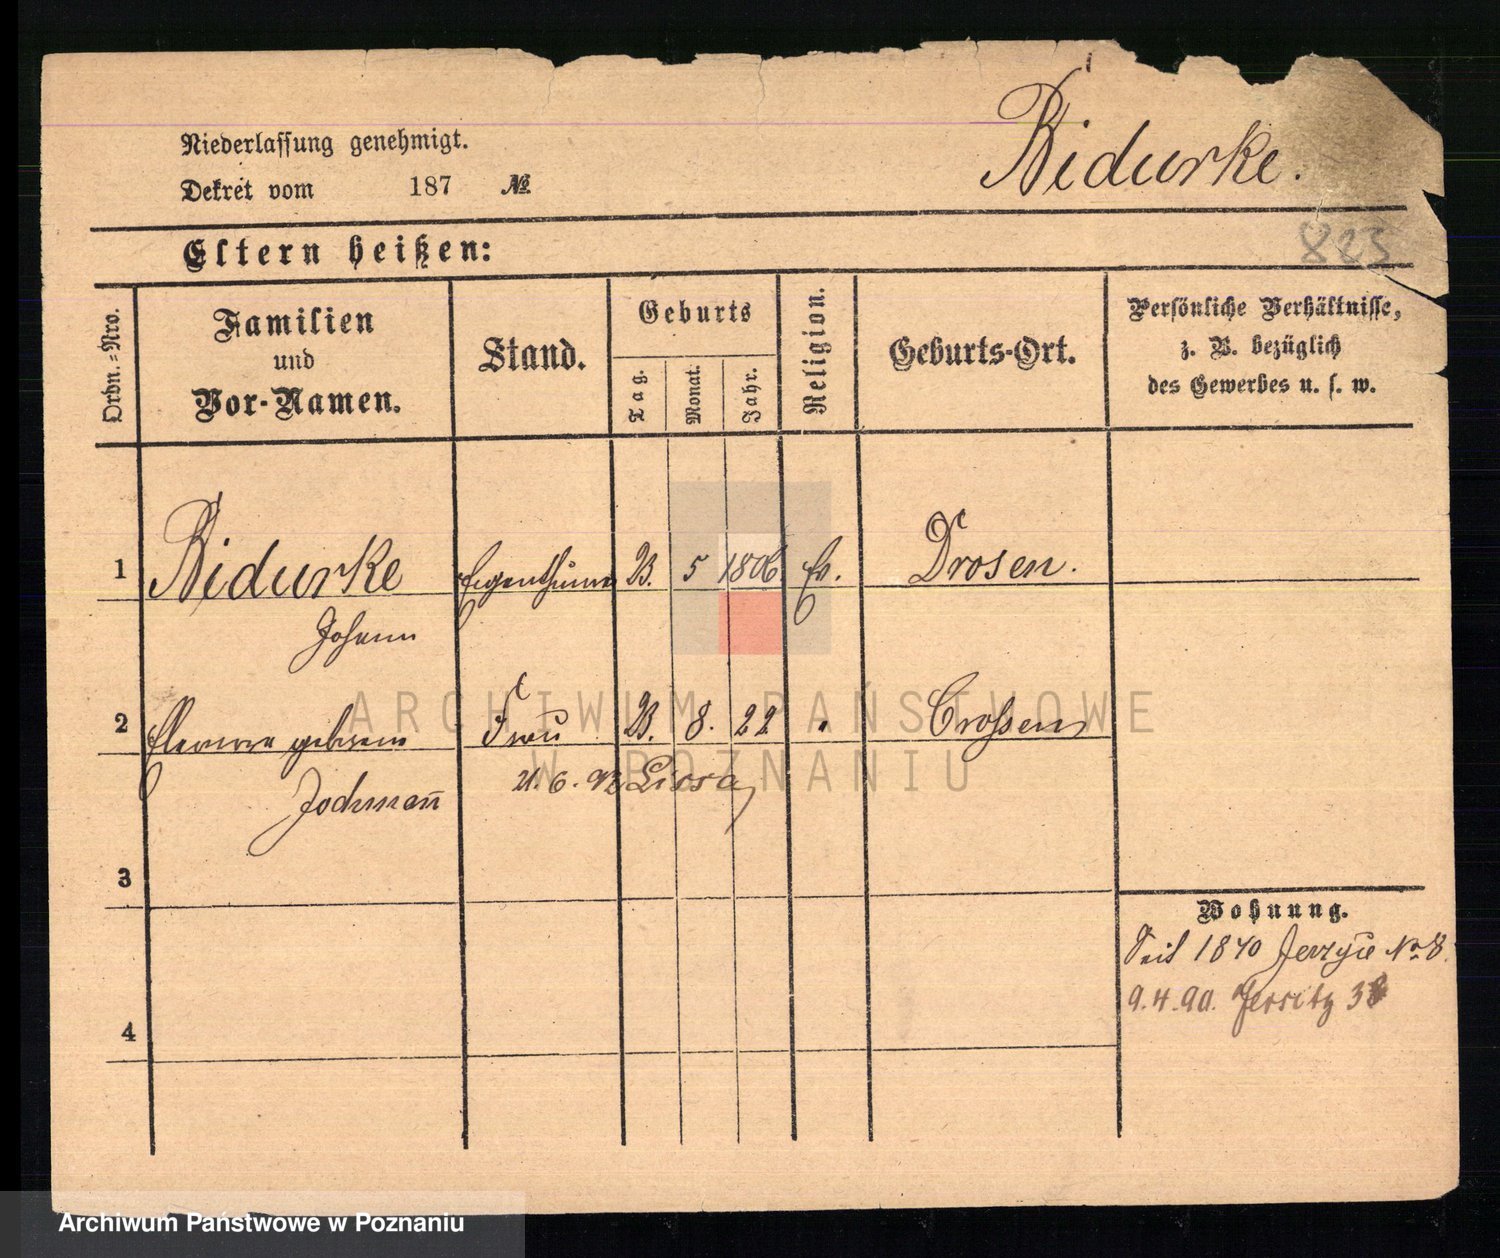 Niederlassung genehmigt.
Dekret vom 187 №
Bidurke.
823
Eltern heißen:
Ordn.=Nro.
Familien
und
Vor-Namen.
Stand.
Geburts
Tag.
Monat.
Jahr.
Religion.
Geburts-Ort.
Persönliche Verhältnisse,
z. B. bezüglich
des Gewerbes u. s. w.
1 Bidurke Eigenthümer 5 1806 Ev. Drosen.
Johann
2 geborene Frau 8. 22 " Crossen
Jochmann Lissa
3
Wohnung.
Seit 1870 No 8.
9.4.90. Jersitz
4
ARCHIWUM PAŃSTWOWE
W POZNANIU
Archiwum Państwowe w Poznaniu